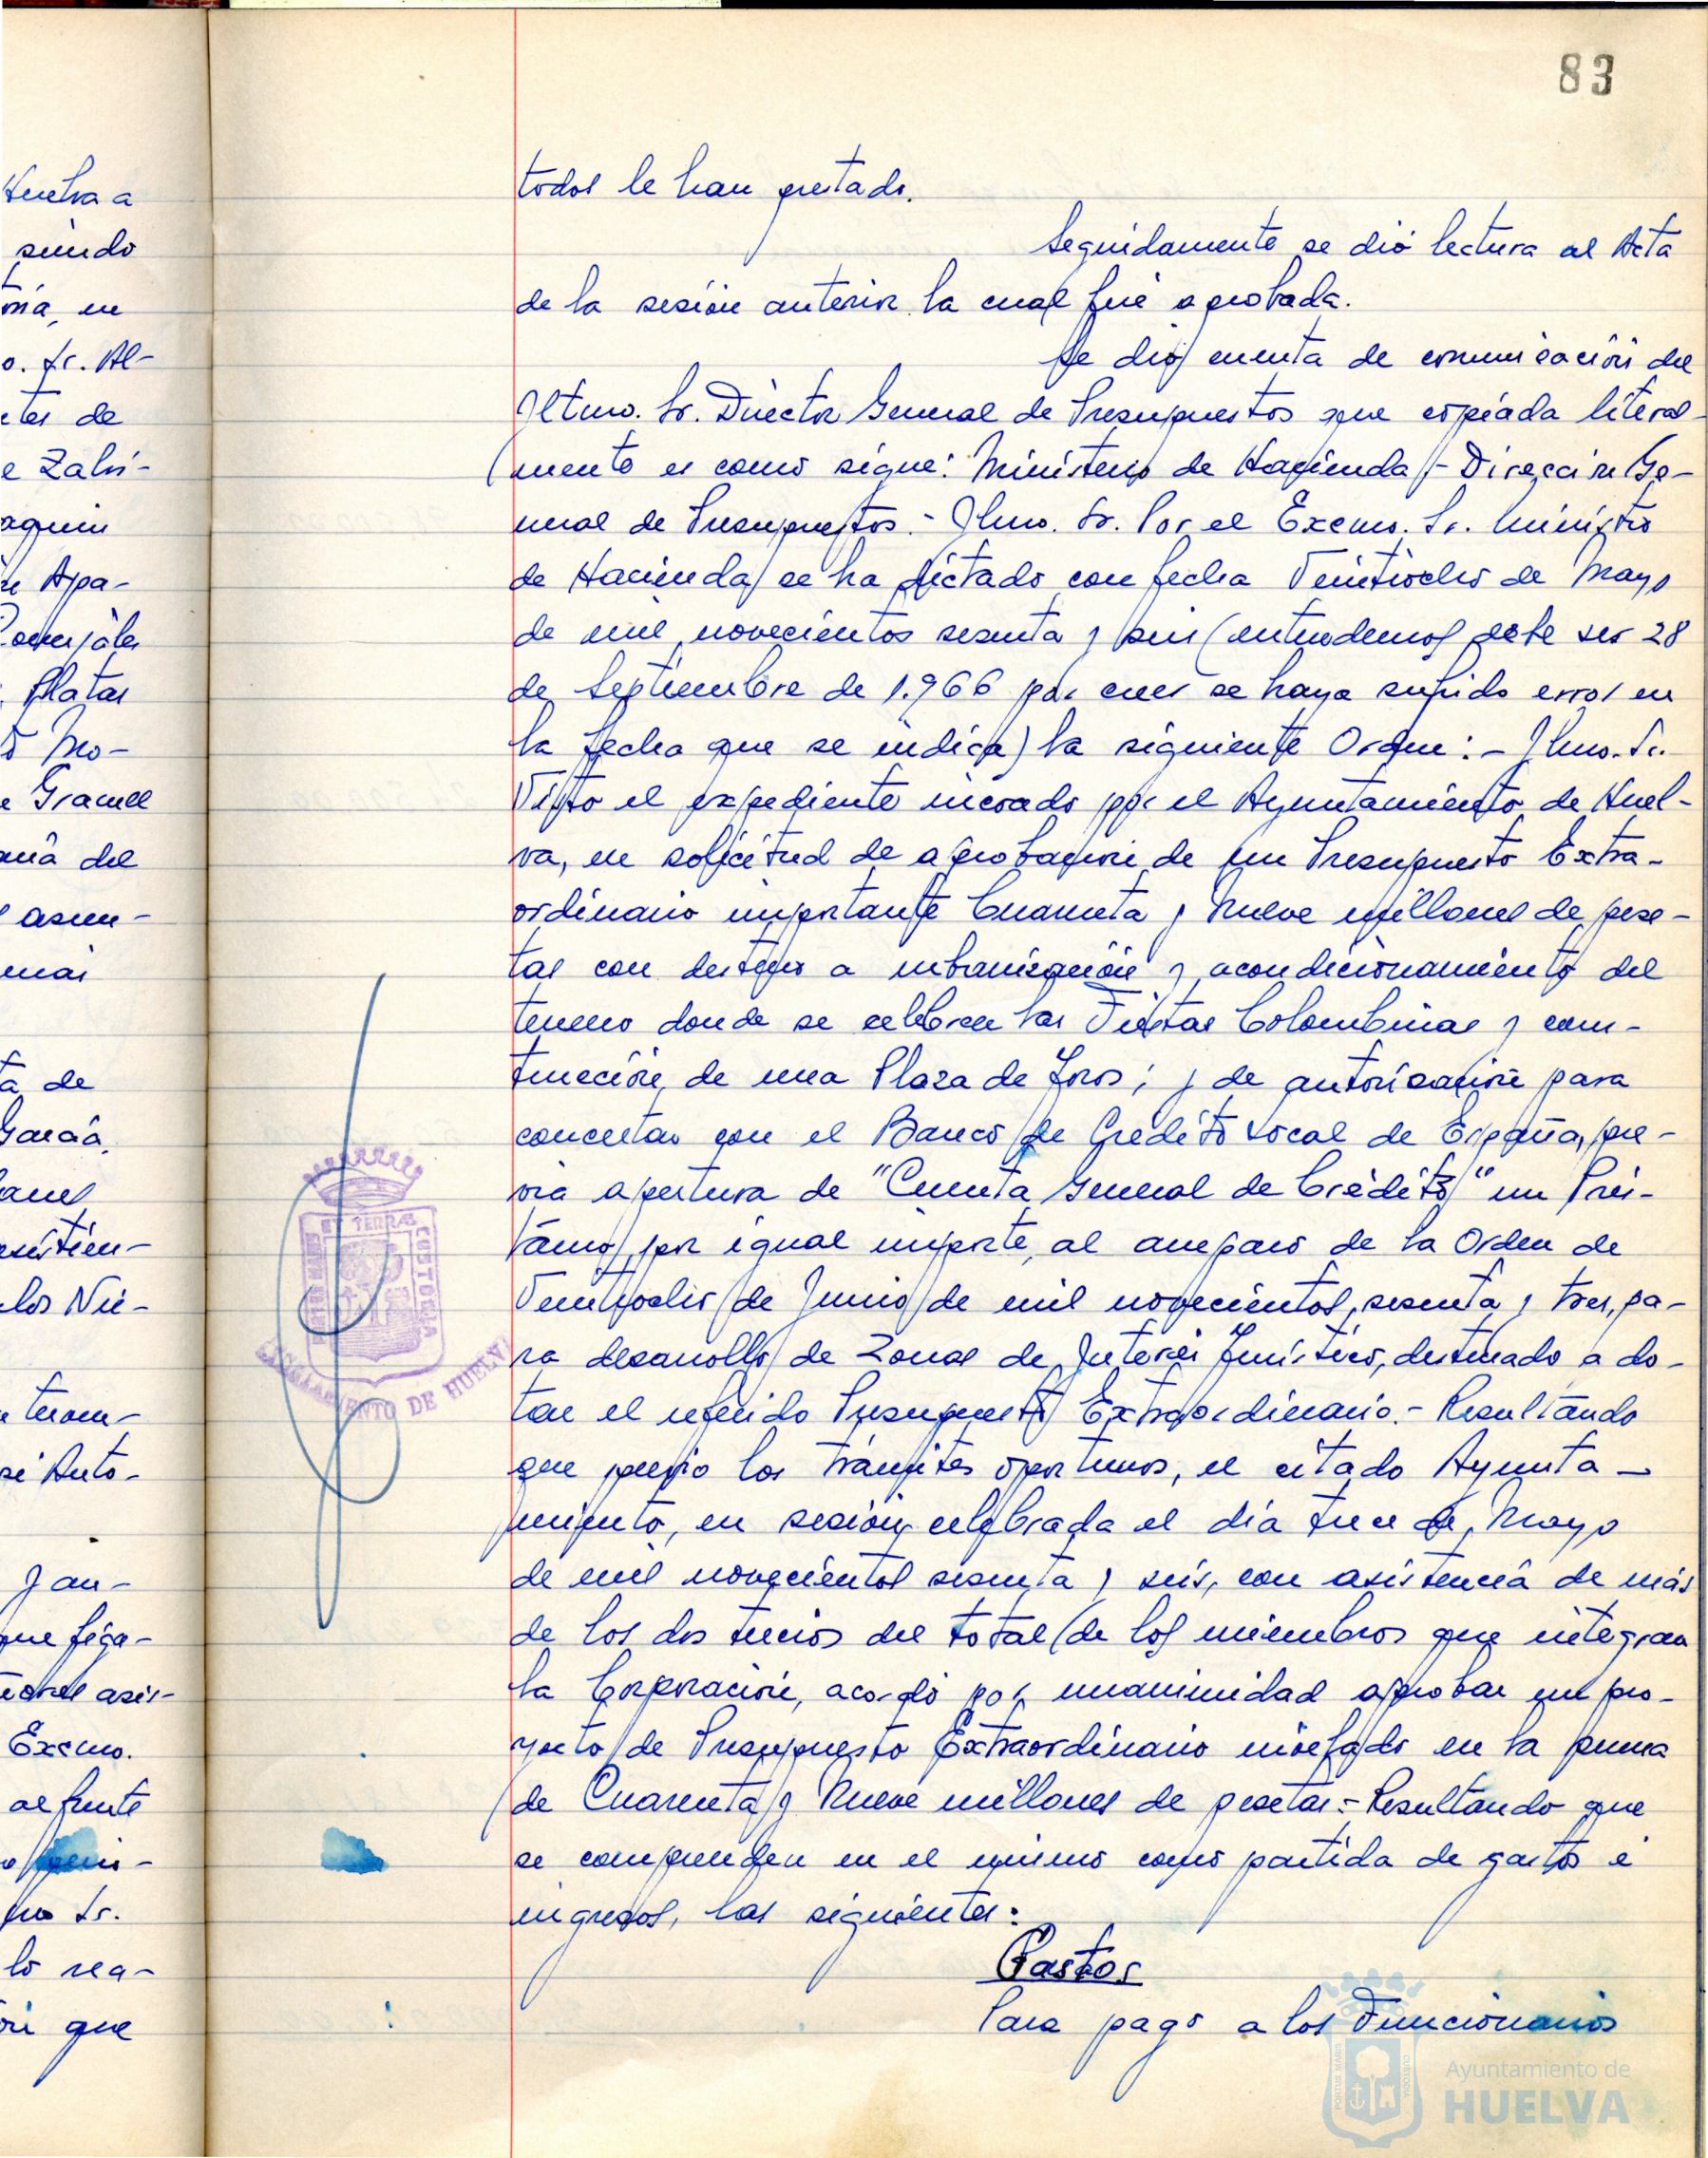 83
todos le han prestado.
Seguidamente se dió lectura al Acta
de la sesión anterior la cual fué aprobada.
Se dió cuenta de comunicación del
Iltmo. Sr. Director General de Presupuestos que copiada literal-
mente es como sigue: Ministerio de Hacienda - Dirección Ge-
neral de Presupuestos. - Ilmo. Sr. Por el Excmo. Sr. Ministro
de Hacienda se ha dictado con fecha Veintiocho de Mayo
de mil novecientos sesenta y seis (entendemos debe ser 28
de Septiembre de 1.966 por creer se haya sufrido error en
la fecha que se indica) la siguiente Orden: - Ilmo. Sr.
Visto el expediente incoado por el Ayuntamiento de Huel-
va, en solicitud de aprobación de un Presupuesto Extra-
ordinario importante Cuarenta y Nueve millones de pese-
tas con destino a urbanización y acondicionamiento del
terreno donde se celebren las Fiestas Colombinas y cons-
trucción de una Plaza de Toros; y de autorización para
concertar con el Banco de Crédito Local de España, pre-
via apertura de "Cuenta General de Crédito" un Prés-
tamo por igual importe, al amparo de la Orden de
Veintiocho de Junio de mil novecientos sesenta y tres, pa-
ra desarrollo de Zonas de Interés Turístico, destinado a do-
tar el referido Presupuesto Extraordinario. - Resultando
que previo los trámites oportunos, el citado Ayunta-
miento, en sesión celebrada el día trece de Mayo
de mil novecientos sesenta y seis, con asistencia de más
de los dos tercios del total de los miembros que integran
la Corporación, acordó por unanimidad aprobar un pro-
yecto de Presupuesto Extraordinario nivelado en la suma
de Cuarenta y Nueve millones de pesetas = Resultando que
se comprenden en el mismo como partida de gastos e
ingresos, las siguientes:
Gastos
Para pago a los Funcionarios
Huelva a
siendo
en
o. Sr. Al-
de
e Zalvi-
aquin
Apa-
Platas
Mo-
del
asun-
de
García
los Nie-
Anto-
que figu-
asis-
Excmo.
al frente
Sr.
lo rea-
que
PORTUS MARIS ET TERRAE CUSTODIA
AYUNTAMIENTO DE HUELVA
Ayuntamiento de
HUELVA